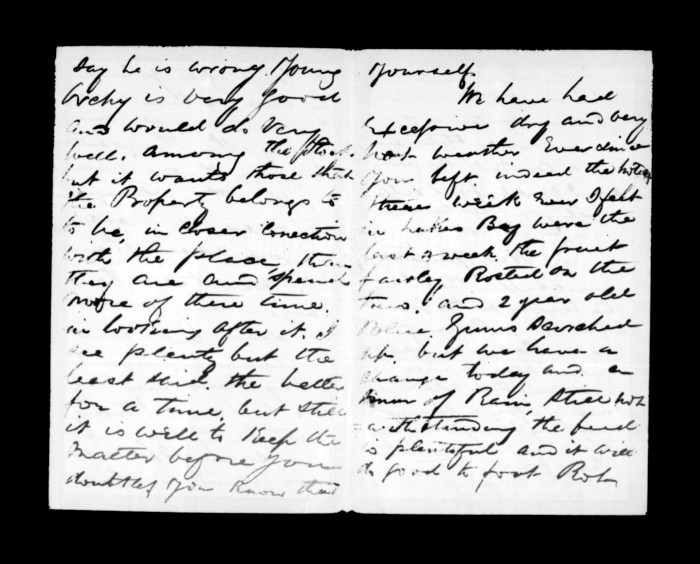 say he is wrong. Young
Archy is very good
and would do very
well. among the stock.
but it wants those that
the Property belongs to
to be, in closer Conection
with the place, than
they are and spend
more of there time.
in looking after it. I
see plenty but the
least said. the better
for a time. but still
it is well to Keep the
matter before you
doubtless you Know that
yourself
We have had
Excessive dry and very
hot weather Ever since
you left indeed the hotest
three week Ever I felt
in Hawkes Bay were the
last 3 week. the fruit
fairley Rosted on the
trees. and 2 year old
Blue Gums Scorched
up. but we have a
change today and a
of Rain, Still not
withstanding the feed
is plentiful and it will
do good to foot Rot